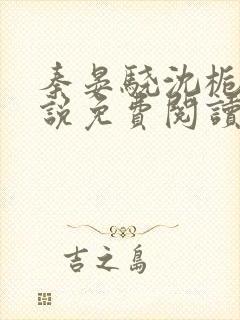 秦晏驍沈梔
說免費閱讀
吉之島